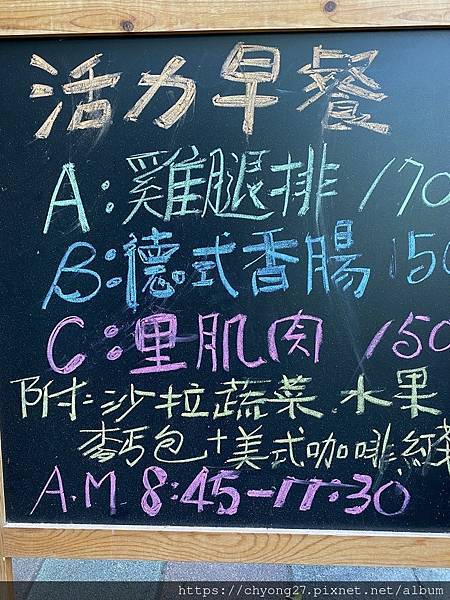 活力早餐
A:雞腿排 170
B:德式香腸 150
C:里肌肉 150
附:沙拉蔬菜.水果
麥丐包+美式咖啡.紅茶
A.M 8:45-11:30
https://chyong27.pixnet.net/album